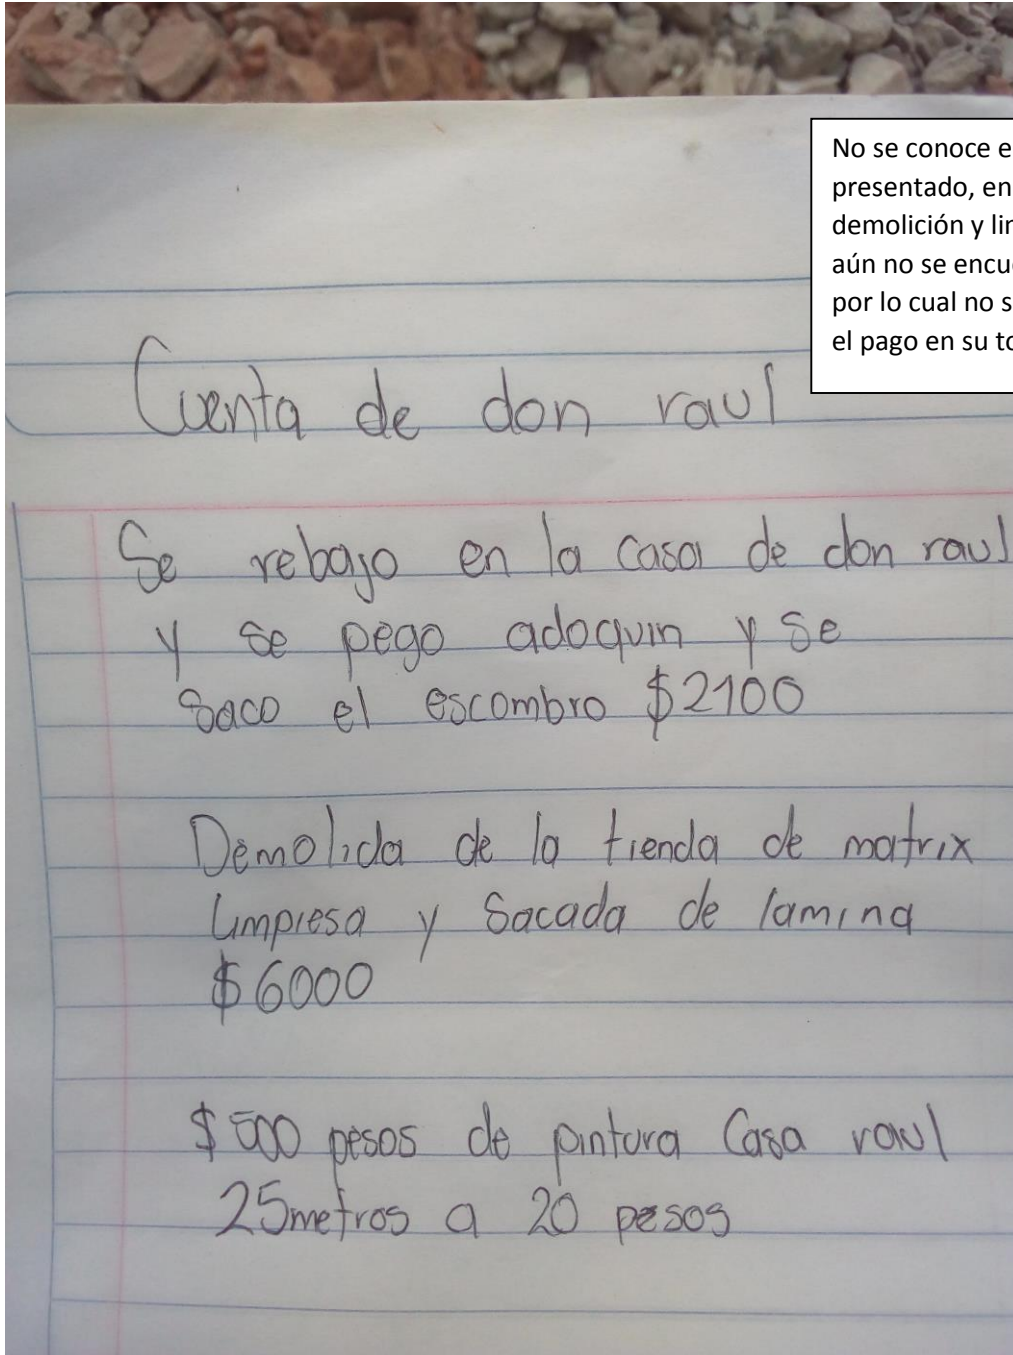 No se conoce e
presentado, en
demolición y lin
aún no se encu
por lo cual no s
el pago en su to
Cuenta de don raul
Se rebajo en la casa de don raul
y se pego adoquin y se
saco el escombro $2100
Demolida de la tienda de matrix
limpiesa y Sacada de lamina
$6000
$500 pesos de pintura Casa raul
25metros a 20 pesos